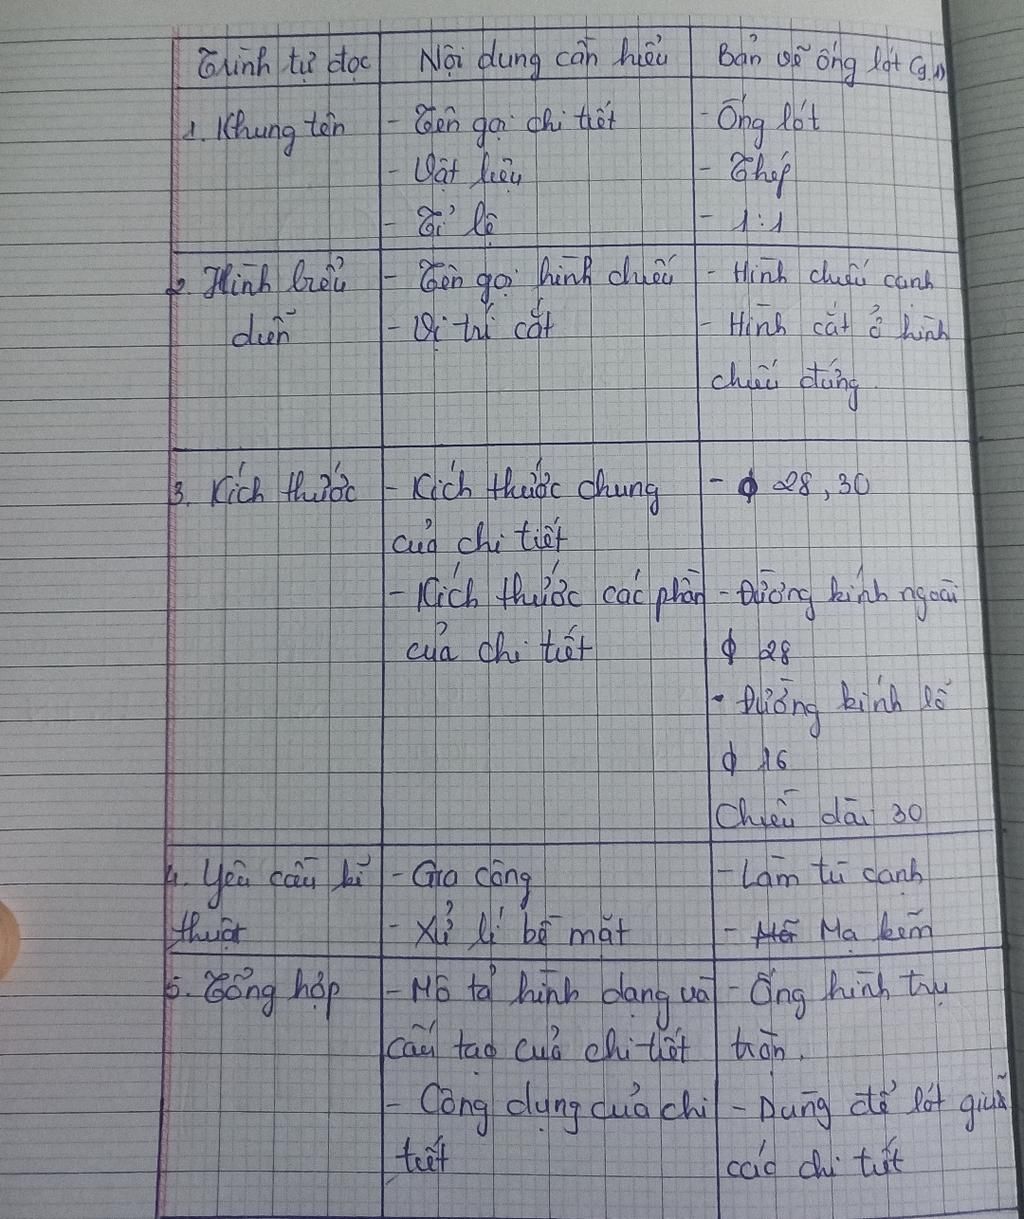 Trình tự đọc
Nội dung cần hiểu
Bản vẽ ống lót (9.1)
1. Khung tên
- Tên gọi chi tiết
- Vật liệu
- Tỉ lệ
- Ống lót
- Thép
- 1:1
2. Hình biểu
diễn
- Tên gọi hình chiếu
- Vị trí cắt
- Hình chiếu cạnh
- Hình cắt ở hình
chiếu đứng
3. Kích thước
- Kích thước chung
của chi tiết
- Kích thước các phần
của chi tiết
- ϕ 28, 30
- Đường kính ngoài
ϕ 28
- Đường kính lỗ
ϕ 16
Chiều dài 30
4. Yêu cầu kĩ
thuật
- Gia công
- Xử lí bề mặt
- Làm tù cạnh
- Mạ kẽm
5. Tổng hợp
- Mô tả hình dạng và
cấu tạo của chi tiết
- Công dụng của chi
tiết
- Ống hình trụ
tròn.
- Dùng để lót giữa
các chi tiết